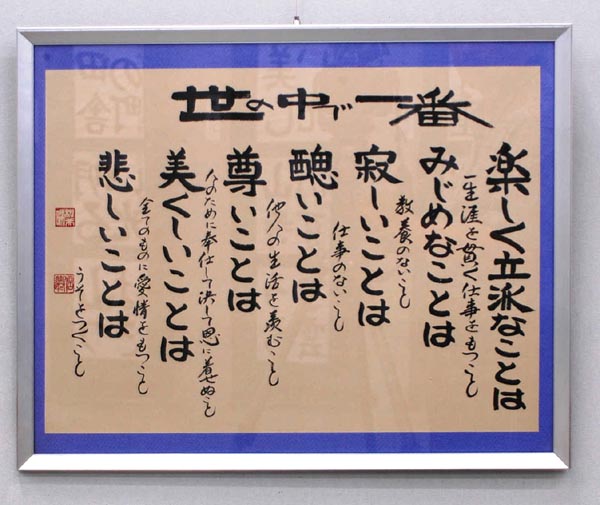 世の中で一番
楽しく立派なことは
一生涯を貫く仕事をもつことです
みじめなことは
教養のないことです
寂しいことは
仕事のないことです
醜いことは
他人の生活を羨むことです
尊いことは
人のために奉仕して決して恩に着せぬことです
美くしいことは
全てのものに愛情をもつことです
悲しいことは
うそをつくことです